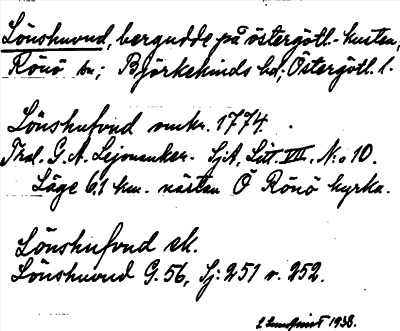 Lönshuvud, bergudde på östergötl. kusten,
Rönö sn; Björkekinds hd; Östergötl. l.
Lönshufvud omkr. 1774.
G. A. Lejonanker. SjA, Litt. VII, N:o 10.
Läge 6,1 km. nästan Ö Rönö kyrka.
Lönshufvud ek.
Lönshuvud G. 56, Sj: 251 o. 252.
1938.